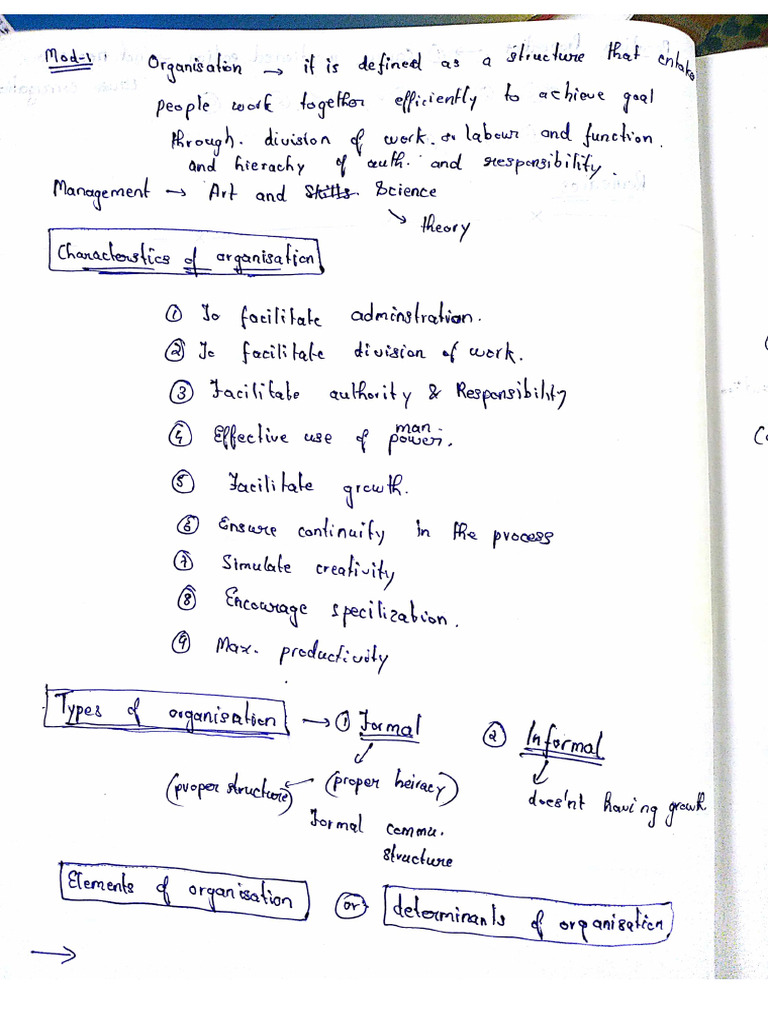 Mod-1 Organisation → it is defined as a structure that entakes
people work together efficiently to achieve goal
through. division of work. or labour and function.
and hierachy of auth. and responsibility.
Management → Art and Skills. Science
↘ theory
Characterstics of organisation
① To facilitate adminstration.
② To facilitate division of work.
③ Facilitate authority & Responsibility
④ Effective use of man-power.
⑤ Facilitate growth.
⑥ Ensure continuity in the process
⑦ Simulate creativity
⑧ Encourage specilization.
⑨ Max. productivity
Types of organisation → ① Formal ② Informal
(proper structure) ← (proper heiracy) does'nt having growth
Formal commu.
structure
Elements of organisation (or) determinants of organisation
→